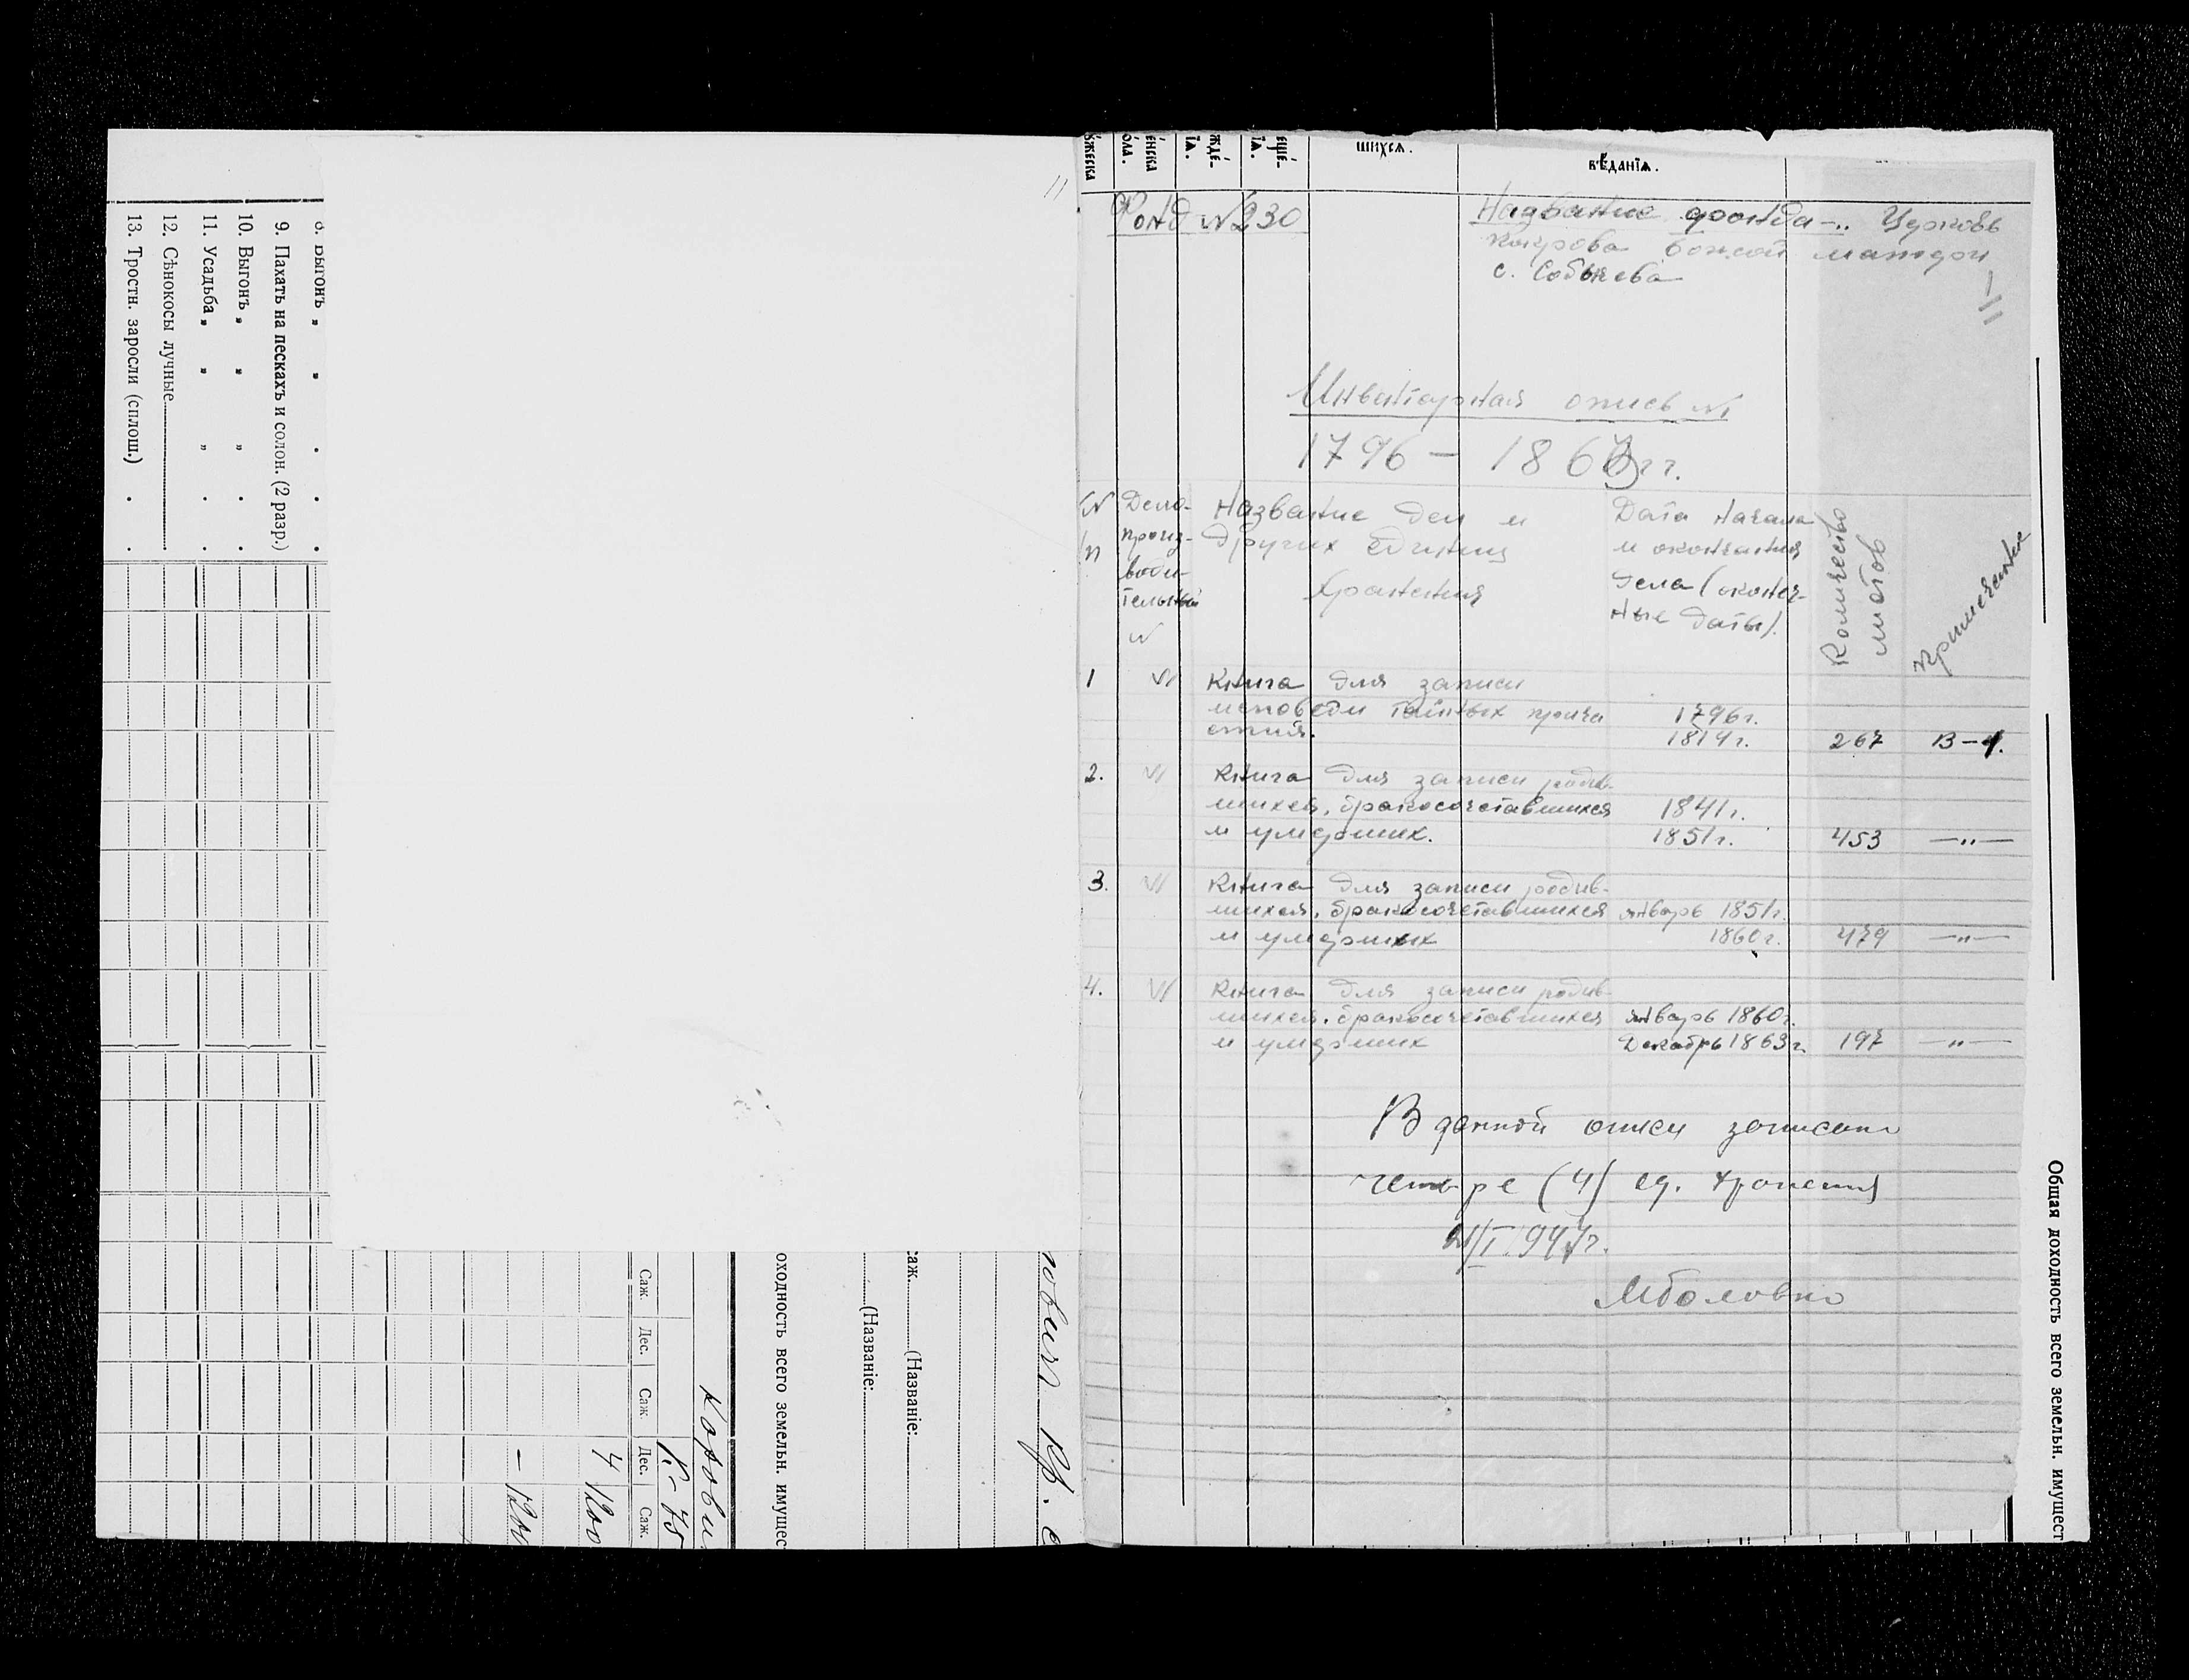 8. Выгонъ „ „ .
9. Пахать на пескахъ и солон. (2 разр.)
10. Выгонъ „ „ „ .
11. Усадьба „ „ „ .
12. Сѣнокосы лучные
13. Тростн. заросли (сплош.) . .
Саж. Дес. Саж. Дес. Саж.
К- 78
4 1200
- 1200
оходность всего земельн. имущес
(Названіе:
саж. (Названіе:
11
шихся.
вѣданїѧ.
Фонд №230
Название фонда – Церковь
покрова божой матери
с.
Инвентарная опись №1
1796 – 1863 гг.
№ п/п
Дело-
произ-
води-
тельный
№
Название дел и
других единиц
хранения
Дата начала
и окончания
дела (конеч-
ные даты).
Количество
листов
Примечание
1 Книга для записи
исповеди тайных прича 1796г.
стия. 1814г. 267 В-4.
2. Книга для записи родив-
шихся, бракосочетавшихся 1841г.
и умерших. 1851г. 453 —„—
3. Книга для записи родив-
шихся, бракосочетавшихся январь 1851г.
и умерших 1860г. 479 —„—
4. Книга для записи родив-
шихся, бракосочетавшихся январь 1860г.
и умерших Декабрь 1863г. 197 —„—
В данной описи записано
четыре (4) ед. хранения
Общая доходность всего земельн. имущест